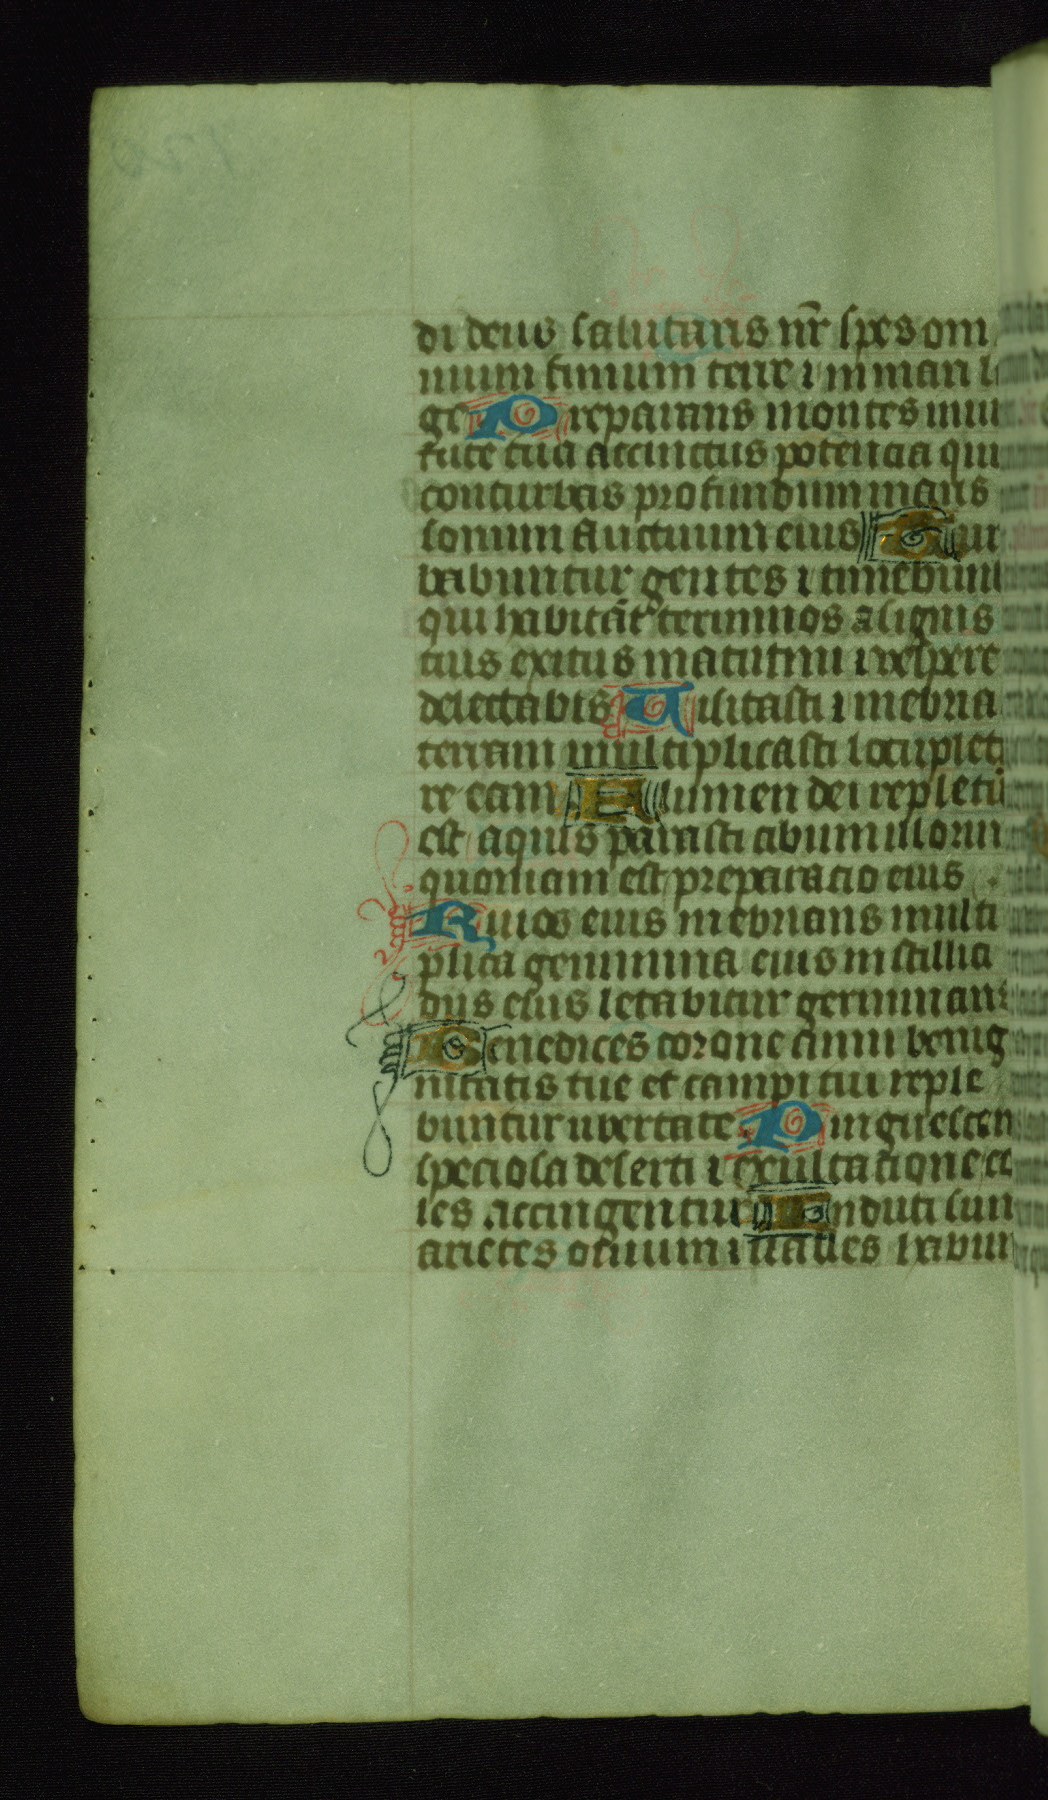 di deus salutaris nr̄ spes om
nium finium terre ⁊ in mari l
ge Preparans montes in uir
tute tua accinctus potencia qui
conturbas profundum maris
sonum fluctuum eius Tur
babuntur gentes ⁊ timebunt
qui habitāt terminos a signis
tuis exitus matutini ⁊ vespere
delectabis Uisitasti ⁊ inebria
terram multiplicasti locupleta
re eam Flumen dei repletū
est aquis parasti cibum illorum
quoniam est preparatio eius
Riuos eius inebrians multi
plica genimina eius in stillici
diis eius letabitur germinans
Benedices corone anni benig
nitatis tue et campi tui reple
buntur ubertate Pinguescen
speciosa deserti ⁊ exultatione co
les accingentur Induti sun
arietes ouium ⁊ ualles habun